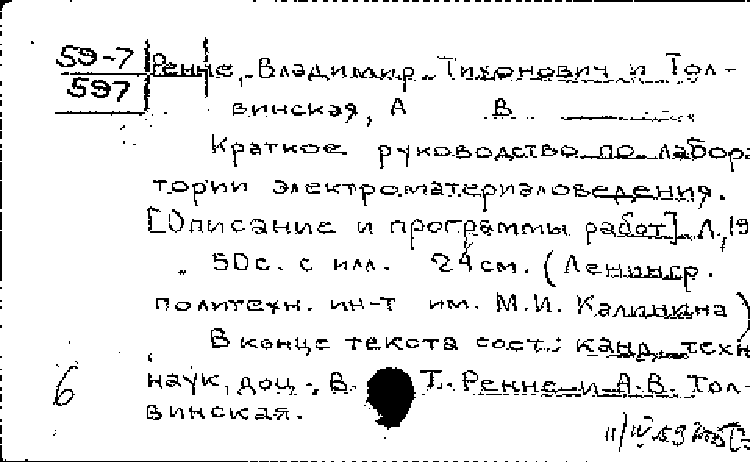 59-7 Ренне, Владимир Тихонович и Тол-
597
винская, А В
Краткое руководство по лабора
тории электроматериаловедения.
[Описание и программы работ]. Л., 19
50с. с илл. 24см. (Ленингр.
политехн. ин-т им. М.И. Калинина)
В конце текста сост.: канд. техн
6 наук, доц., В. Т. Ренне и А.В. Тол-
винская.
11/IV 59